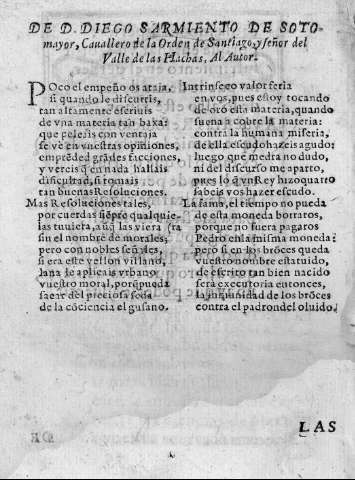 DE D. DIEGO SARMIENTO DE SOTO-
mayor, Cauallero de la Orden de Santiago, y señor del
Valle de las Hachas, Al Autor.
POco el empeño os ataja,
si quando le discurris,
tan altamente escriuis
de vna materia tan baxa:
que peleais con ventaja
se vè en vuestras opiniones,
emprẽded grãdes facciones,
y vereis q̃ en nada hallais
dificultad, si
tan buenas Resoluciones.
Mas Resoluciones tales,
por cuerdas siẽpre qualquie-
las tuuiera, aũq̃ las viera (ra
sin el nombre de morales;
pero con nobles señales,
si era este vellon villano,
lana le aplicais vrbano
vuestro moral, porq̃ pueda
sacar del preciosa seda
de la cõciencia el gusano.
Intrinseco valor seria
en vos, pues estoy tocando
de oro esta materia, quando
suena a cobre la materia:
contra la humana miseria,
de ella escudo hazeis agudo:
luego que medra no dudo,
ni del discurso me aparto,
pues lo q̃ vn Rey hizo quatro
sabeis vos hazer escudo.
La fama, el tiempo no pueda
de esta moneda borraros,
porque no fuera pagaros
Pedro en la misma moneda:
pero si en los brõces queda
vuestro nombre estatuido,
de escrito tan bien nacido
serà executoria entonces,
la inmunidad de los brõces
contra el padron del oluido.
LAS